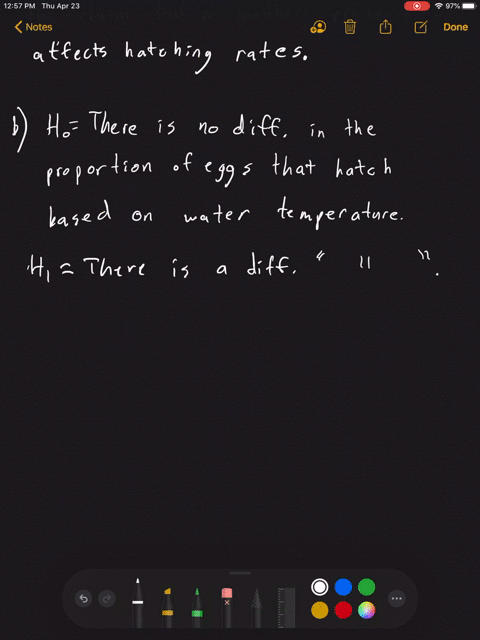 12:57 PM Thu Apr 23
97%
Notes
Done
affects hatching rates.
b) H₀= There is no diff. in the
proportion of eggs that hatch
based on water temperature.
H₁ = There is a diff. " 11 ".